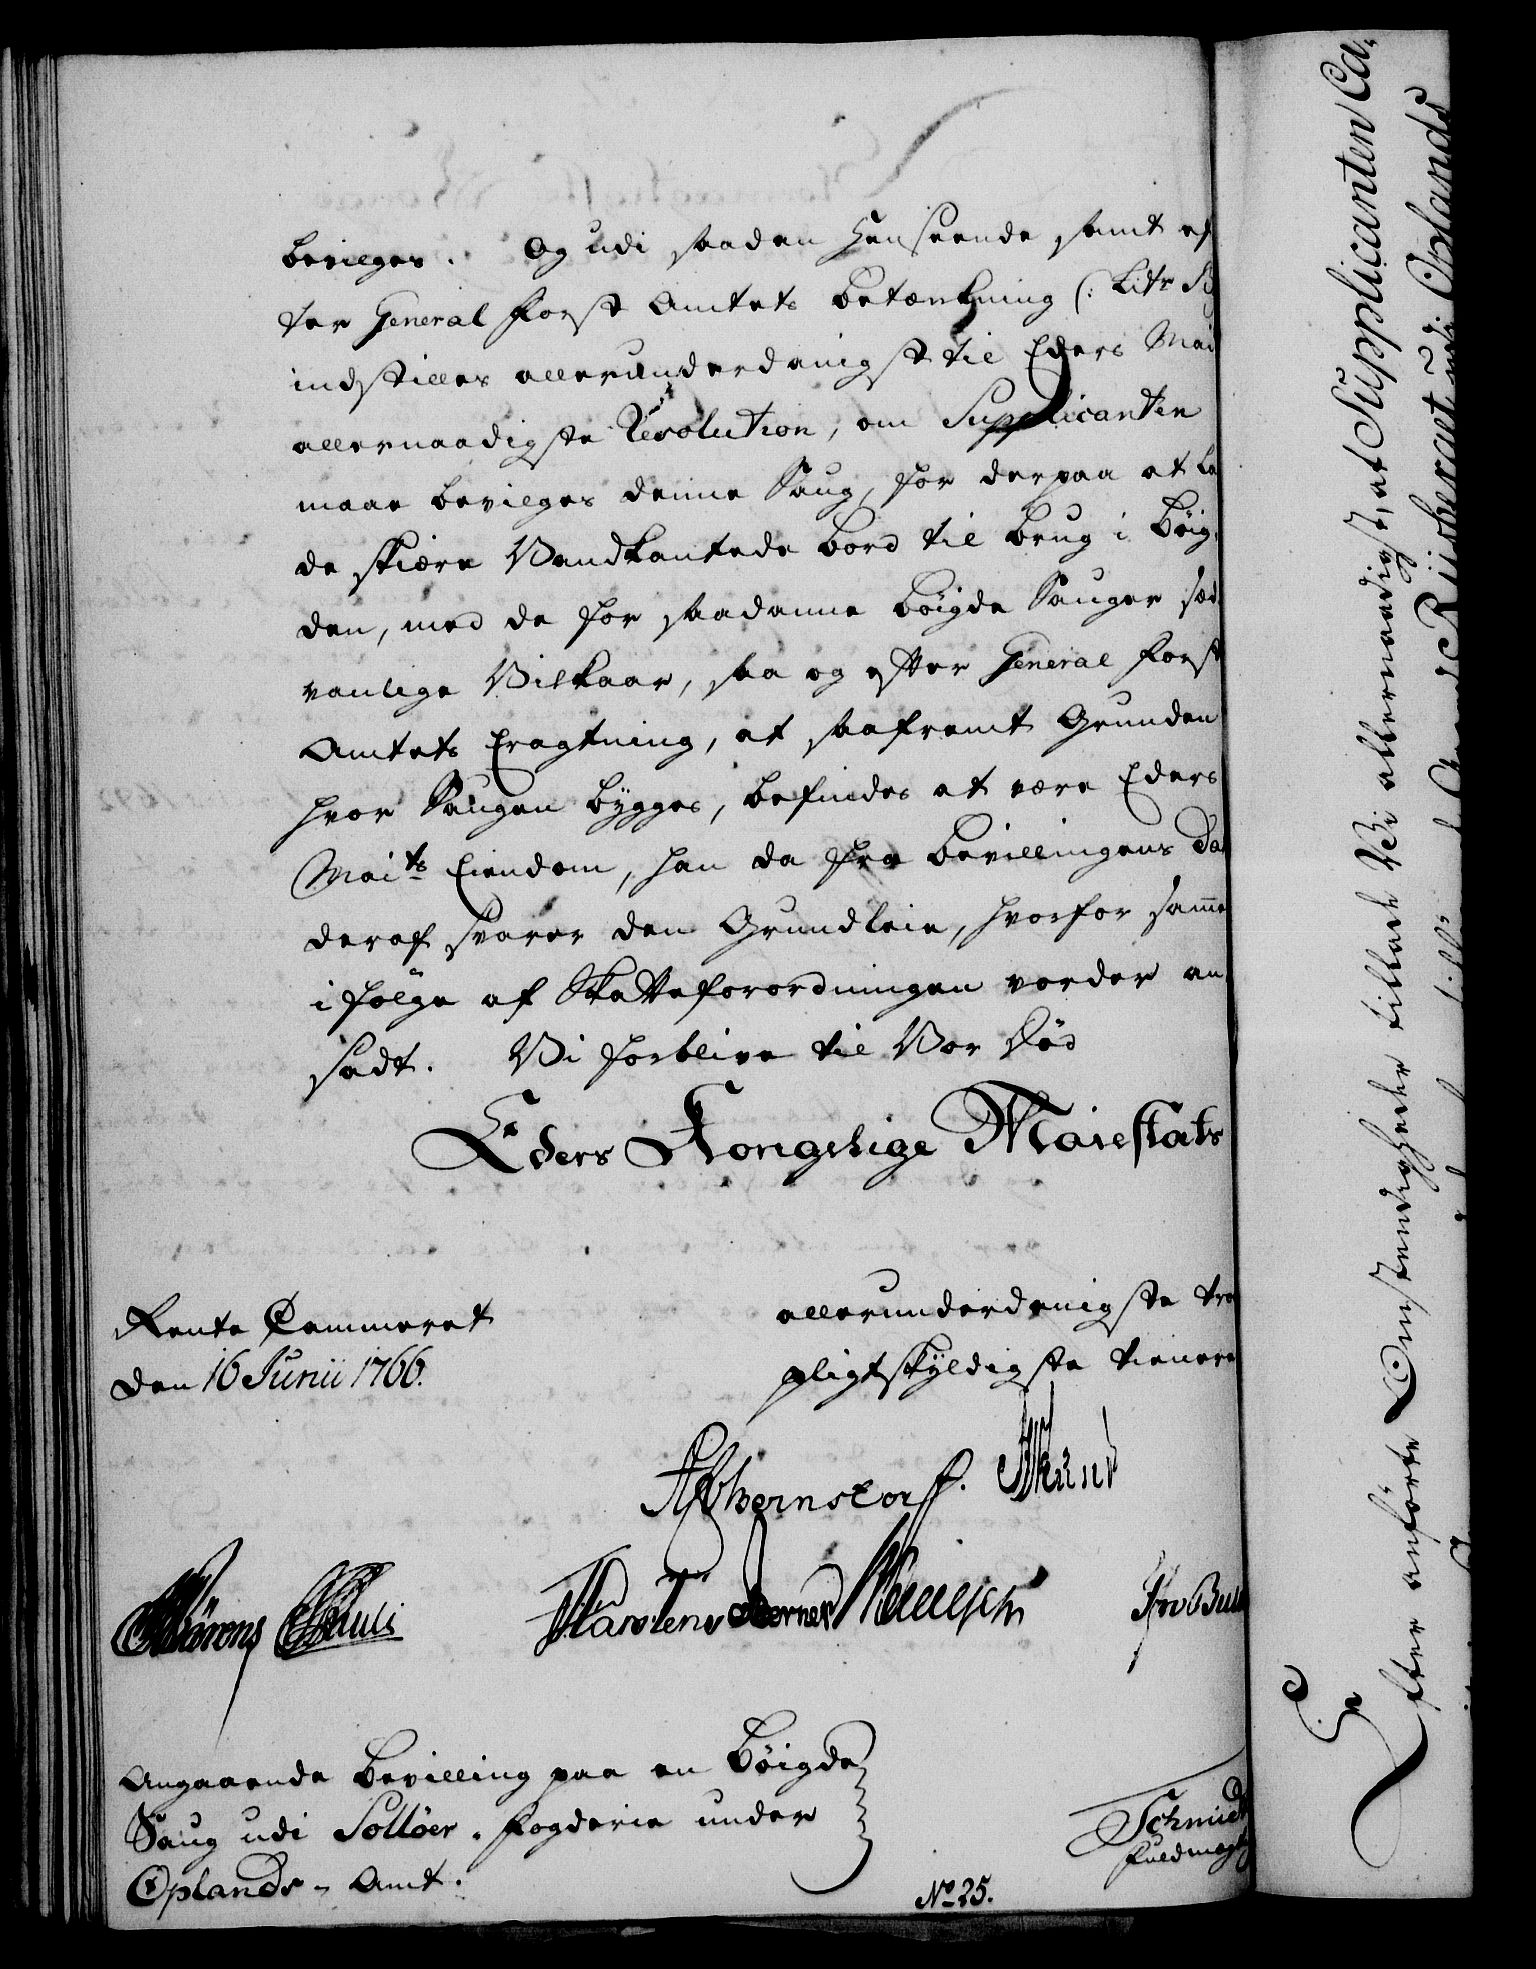 bevilges. Og udi saadan Henseende samt ef
ter General Forst Amtets Betænkning (: Litr B
indstilles allerunderdanigst til Eders Mai
allernaadigste Resolution, om Supplicanten
maae bevilges denne Saug, for derpaa at la
de skiære Vandkantede bord til brug i Bøig-
den, med de for saadanne bøigde Sauger sæd
vanlige Vilkaar, saa og efter General Forst
Amtets Eragtning, at saafremt Grunden
hvor Saugen bygges, befindes at være Eders
Maits Eiendom, han da fra bevillingens Da
deraf svarer den Grundleie, hvorfor samme
i følge af Skatteforordningen vorder an-
sadt. Vi forblive til Vor Død
Eders Kongelige Maiestæts
Rente Cammeret
den 16 Junii 1766.
allerunderdanigste tro
pligtskyldigste tienere
Bernstorff.
Angaaende bevilling paa en Bøigde
Saug udi Solløer-Fogderie under
Oplands-Amt.
Schmidt
Fuldmægt
No 25.
Efter anførte Omstændigheder tillade Vi allernaadigst, at Supplicanten Ca-
Oplands